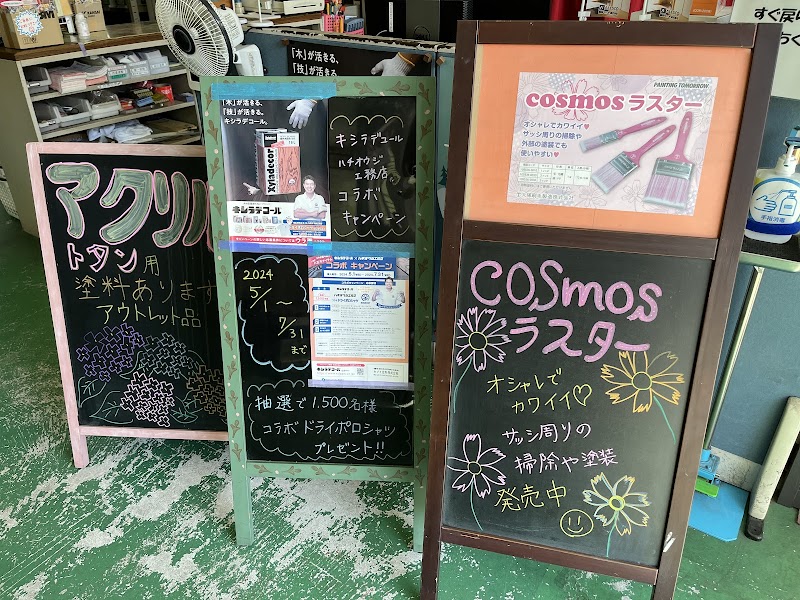 アクリル
トタン用
塗料あります
アウトレット品
「木」が活きる、
「技」が活きる、
キシラデコール。
Xyladecor
キシラデコール
「木」が活きる、
「技」が活きる、
キシラデコール
ハチオウジ
工務店
コラボ
キャンペーン
2024
5/1〜
7/31
まで
コラボ キャンペーン
抽選で1,500名様
コラボドライポロシャツ
プレゼント!!
PAINTING TOMORROW
cosmosラスター
オシャレで
カワイイ♥
サッシ周りの掃除や
外部の塗装でも
使いやすい♥
cosmos
ラスター
オシャレで
カワイイ♡
サッシ周りの
掃除や塗装
発売中
すぐ戻
手指消毒